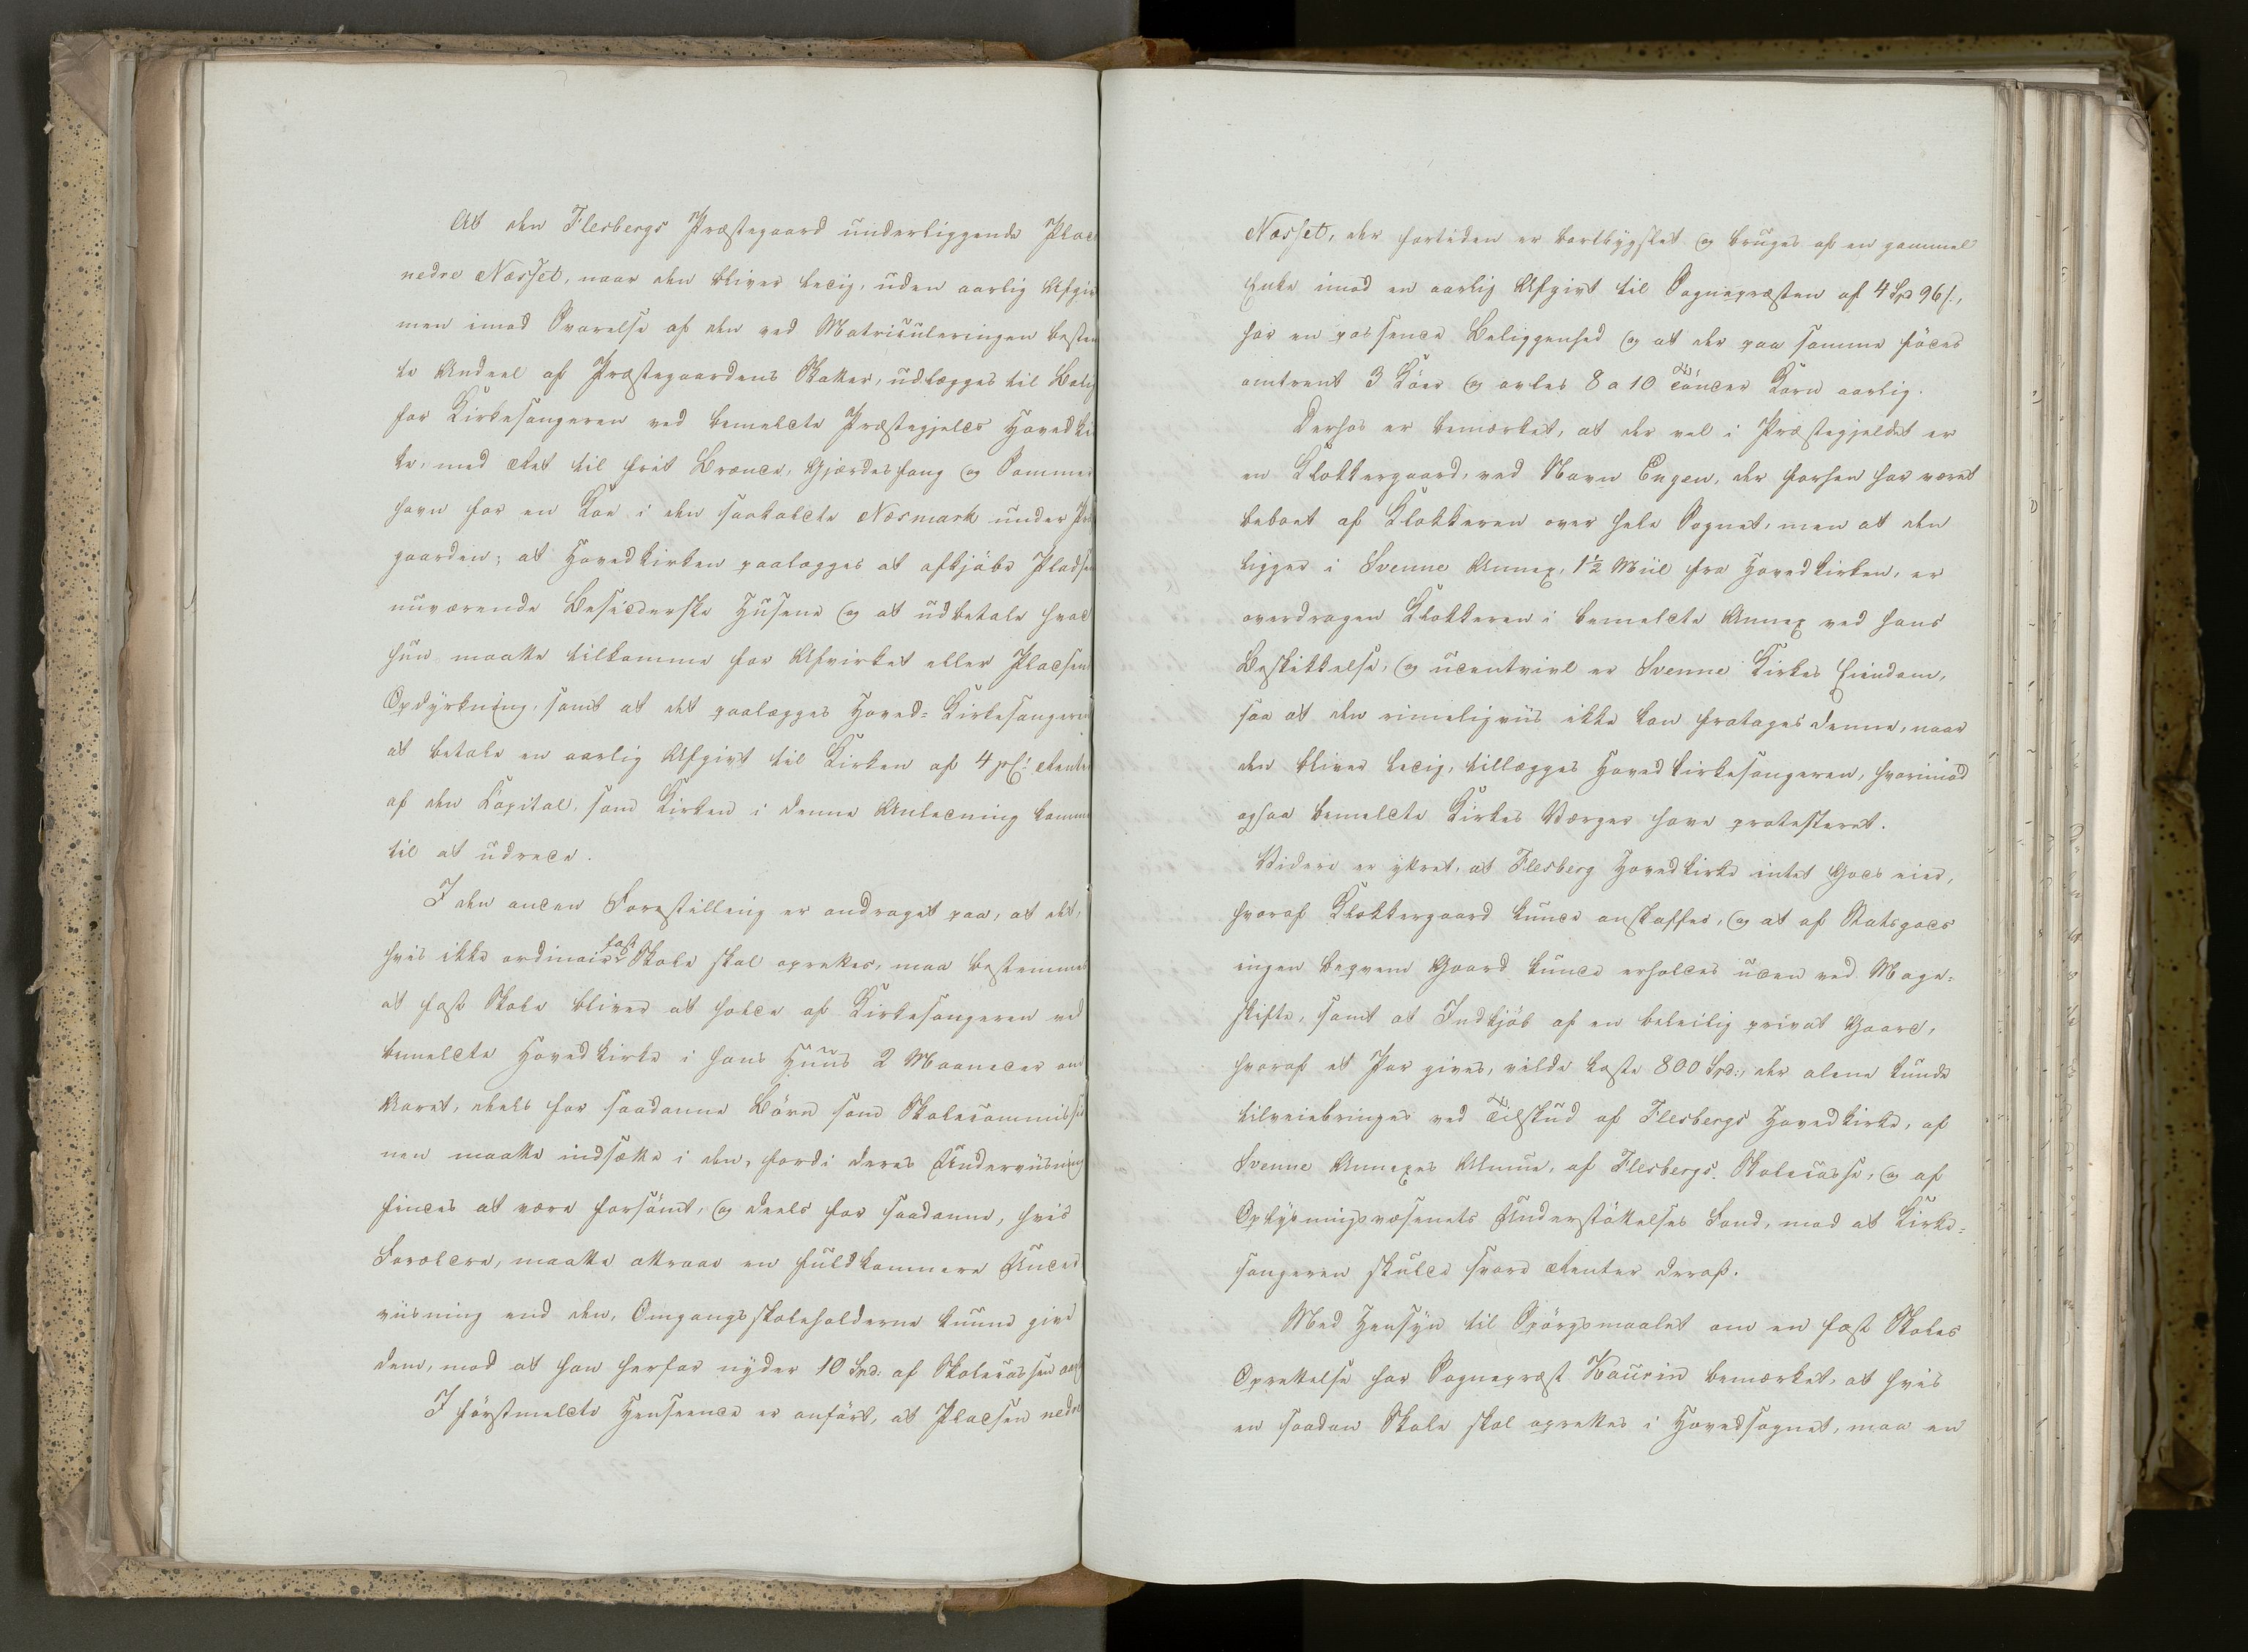 At den Flesbergs Præstegaard underliggende Plad
nedre Næsset, naar den bliver ledig, uden aarlig Afgiv
men imod Svarelse af den ved Matriculeringen bestem
te Andeel af Præstegaardens Skatter, udlægges til Bolig
for Kirkesangeren ved bemeldte Præstegjelds Hovedkir
ke, med Ret til frit Brænde, Gjærdefang og Sommer
havn for en Koe i den saakaldte Næsmark under Præ
gaarden; at Hovedkirken paalægges at afkjøbe Pladsen
nuværende Besidderske Husene og at udbetale hvad
hun maatte tilkomme for Afvirket eller Pladsens
Opdyrkning, samt at det paalægges Hoved-Kirkesangeren
at betale en aarlig Afgivt til Kirken af 4 pCt. Renter
af den Capital, som Kirken i denne Anledning komme
til at udrede.
I den anden Forestilling er andraget paa, at det,
hvis ikke ordinair fast Skole skal oprettes, maa bestemmes
at fast Skole bliver at holde af Kirkesangeren ved
bemeldte Hovedkirke i hans Huus 2 Maaneder om
Aaret, deels for saadanne Børn som Skolecommissio
nen maatte indsætte i den, fordi deres Underviisning
findes at være forsømt, og deels for saadanne, hvis
Forældre, maatte attraae en fuldkomnere Under
viisning end den, Omgangsskoleholderne kunne give
dem, mod at han herfor nyder 10 Spd: af Skolecassen aarl
I førstmeldte Henseende er anført, at Pladsen nedre
Næsset, der fortiden er bortbygslet og bruges af en gammel
Enke imod en aarlig Afgivt til Sognepræsten af 4 Spd 96 s.,
har en passende Beliggenhed og at der paa samme fødes
omtrent 3 Køer og avles 8 a 10 Tønder Korn aarlig.
Derhos er bemærket, at der vel i Præstegjeldet er
en Klokkergaard, ved Navn Engen, der forhen har været
beboet af Klokkeren over hele Sognet, men at den
ligger i Svenne Annex, 1½ Miil fra Hovedkirken, er
overdragen Klokkeren i bemeldte Annex ved hans
Beskikkelse, og udentvivl er Svenne Kirkes Eiendom,
saa at den rimeligviis ikke kan fratages denne, naar
den bliver ledig, tillægges Hovedkirkesangeren, hvorimod
ogsaa bemeldte Kirkes Værger have protesteret.
Videre er yttret, at Flesberg Hovedkirke intet Gods eier,
hvoraf Klokkergaard kunde anskaffes, og at af Statsgods
ingen beqvem Gaard kunde erholdes uden ved Mage-
skifte, samt at Indkjøb af en beleilig privat Gaard,
hvoraf et Par gives, vilde koste 800 Spd:, der alene kunde
tilveiebringes ved Tilskud af Flesbergs Hovedkirke, af
Svenne Annexes Almue, af Flesbergs Skolecasse, og af
Oplysningsvæsenets Understøttelses Fond, mod at Kirke-
sangeren skulde svare Renter deraf.
Med Hensyn til Spørgsmaalet om en fast Skoles
Oprettelse har Sognepræst Kaurin bemærket, at hvis
en saadan Skole skal oprettes i Hovedsognet, maa en